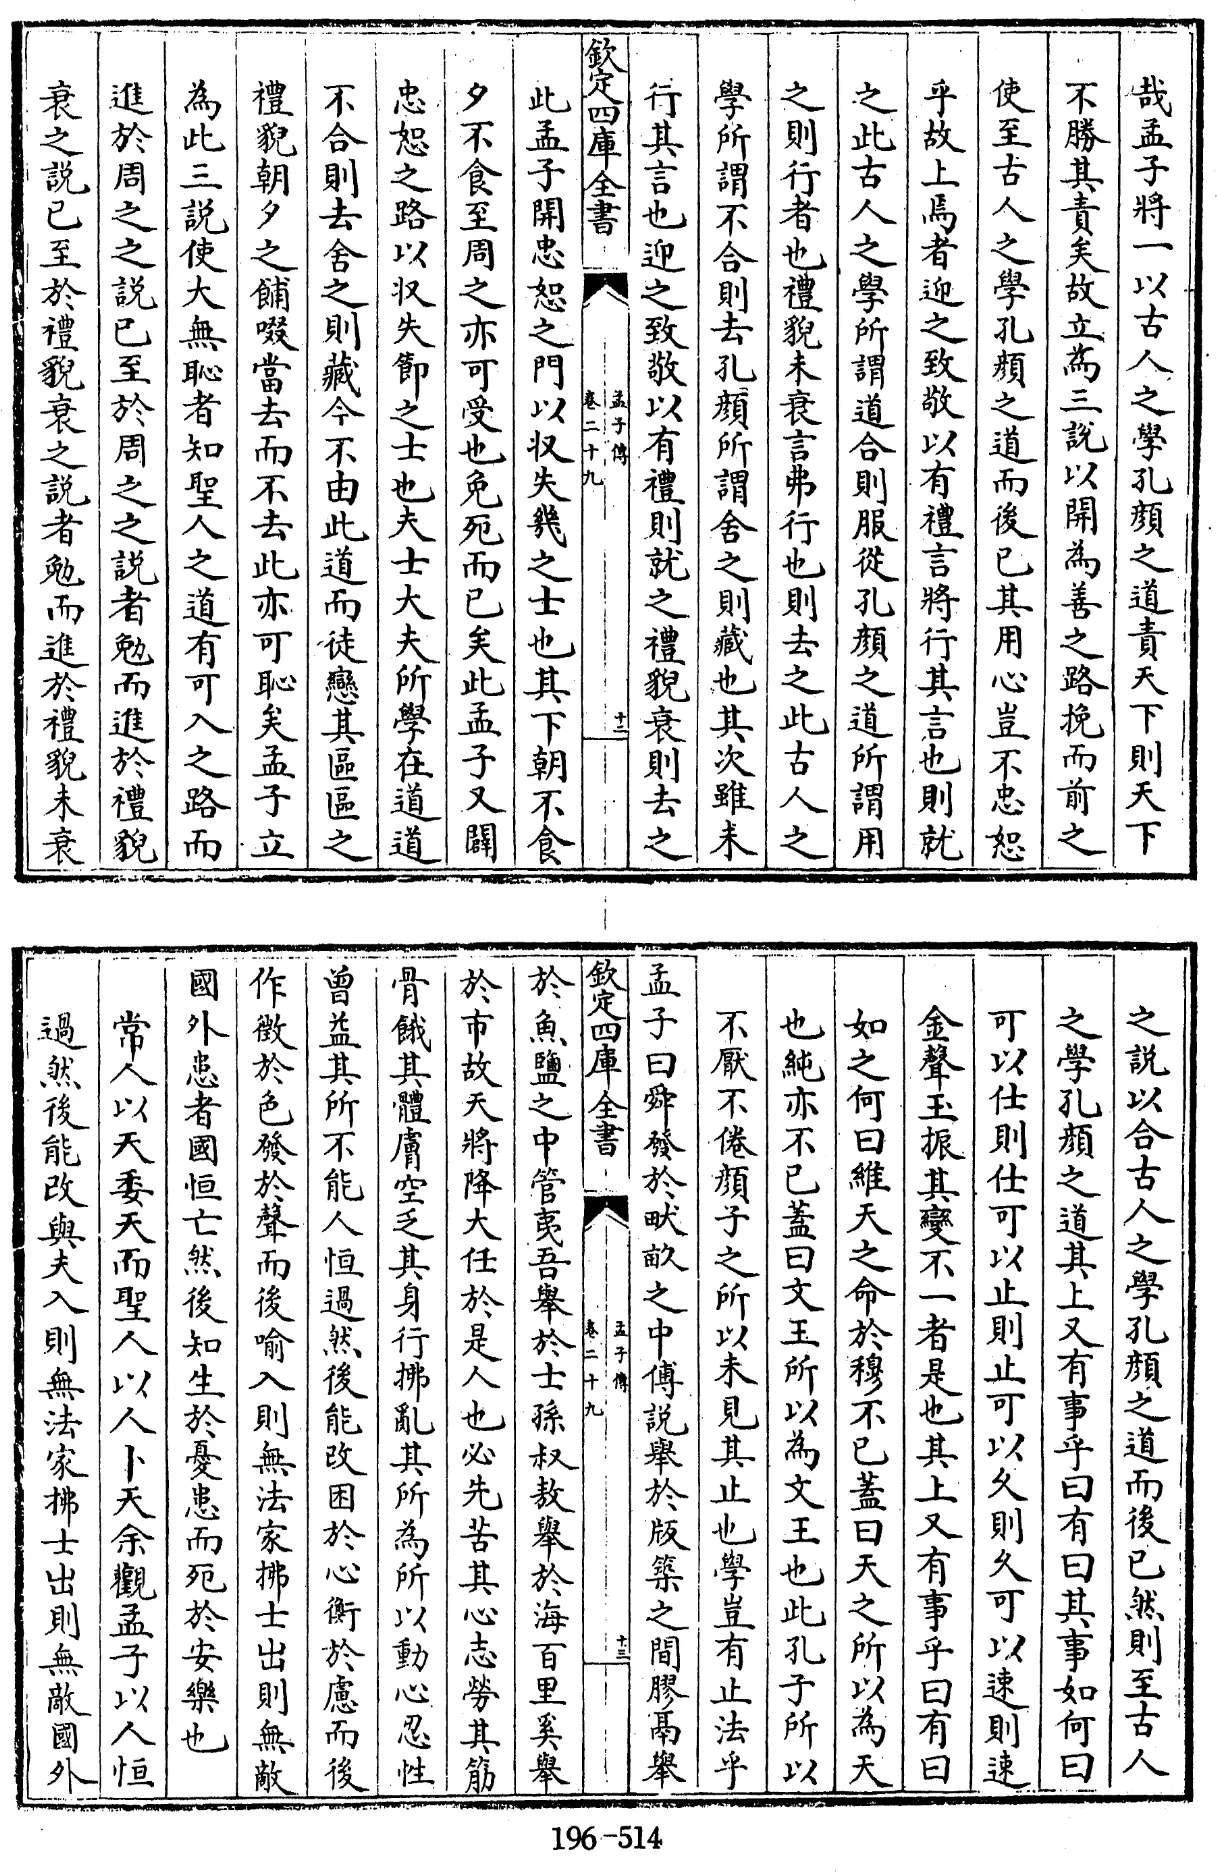 哉孟子將一以古人之學孔顔之道責天下則天下
不勝其責矣故立為三説以開為善之路挽而前之
使至古人之學孔顔之道而後已其用心豈不忠恕
乎故上焉者迎之致敬以有禮言將行其言也則就
之此古人之學所謂道合則服從孔顔之道所謂用
之則行者也禮貌未衰言弗行也則去之此古人之
學所謂不合則去孔顔所謂舍之則藏也其次雖未
行其言也迎之致敬以有禮則就之禮貌衰則去之
欽定四庫全書
孟子傳
卷二十九
十二
此孟子開忠恕之門以収失幾之士也其下朝不食
夕不食至周之亦可受也免死而已矣此孟子又闢
忠恕之路以収失節之士也夫士大夫所學在道道
不合則去舍之則藏今不由此道而徒戀其區區之
禮貌朝夕之餔啜當去而不去此亦可恥矣孟子立
為此三説使大無恥者知聖人之道有可入之路而
進於周之之説已至於周之之説者勉而進於禮貌
衰之説已至於禮貌衰之説者勉而進於禮貌未衰
之説以合古人之學孔顔之道而後已然則至古人
之學孔顔之道其上又有事乎曰有曰其事如何曰
可以仕則仕可以止則止可以久則久可以速則速
金聲玉振其變不一者是也其上又有事乎曰有曰
如之何曰維天之命於穆不已蓋曰天之所以為天
也純亦不已蓋曰文王所以為文王也此孔子所以
不厭不倦顔子之所以未見其止也學豈有止法乎
孟子曰舜發於畎畝之中傅説舉於版築之間膠鬲舉
欽定四庫全書
孟子傳
卷二十九
十三
於魚鹽之中管夷吾舉於士孫叔敖舉於海百里奚舉
於市故天將降大任於是人也必先苦其心志勞其筋
骨餓其體膚空乏其身行拂亂其所為所以動心忍性
曾益其所不能人恒過然後能改困於心衡於慮而後
作徵於色發於聲而後喻入則無法家拂士出則無敵
國外患者國恒亡然後知生於憂患而死於安樂也
常人以天委天而聖人以人卜天余觀孟子以人恒
過然後能改與夫入則無法家拂士出則無敵國外
196-514